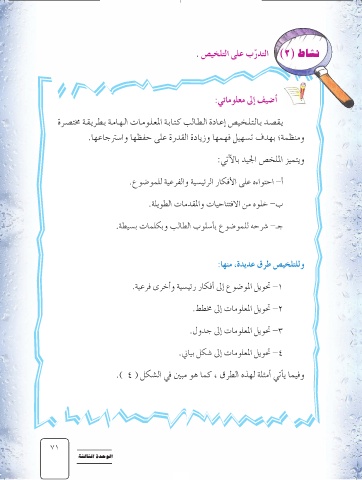 نشاط (٢) التدرّب على التلخيص .
أضيف إلى معلوماتي:
يقصد بالتلخيص إعادة الطالب كتابة المعلومات الهامة بطريقة مختصرة
ومنظمة؛ بهدف تسهيل فهمها وزيادة القدرة على حفظها واسترجاعها.
ويتميز الملخص الجيد بالآتي:
أ- احتواءه على الأفكار الرئيسية والفرعية للموضوع.
ب- خلوه من الافتتاحيات والمقدمات الطويلة.
جـ- شرحه للموضوع بأسلوب الطالب وبكلمات بسيطة.
وللتلخيص طرق عديدة، منها:
١- تحويل الموضوع إلى أفكار رئيسية وأخرى فرعية.
٢- تحويل المعلومات إلى مخطط.
٣- تحويل المعلومات إلى جدول.
٤- تحويل المعلومات إلى شكل بياني.
وفيما يأتي أمثلة لهذه الطرق ، كما هو مبين في الشكل ( ٤ ).
٧١
الوحدة الثالثة